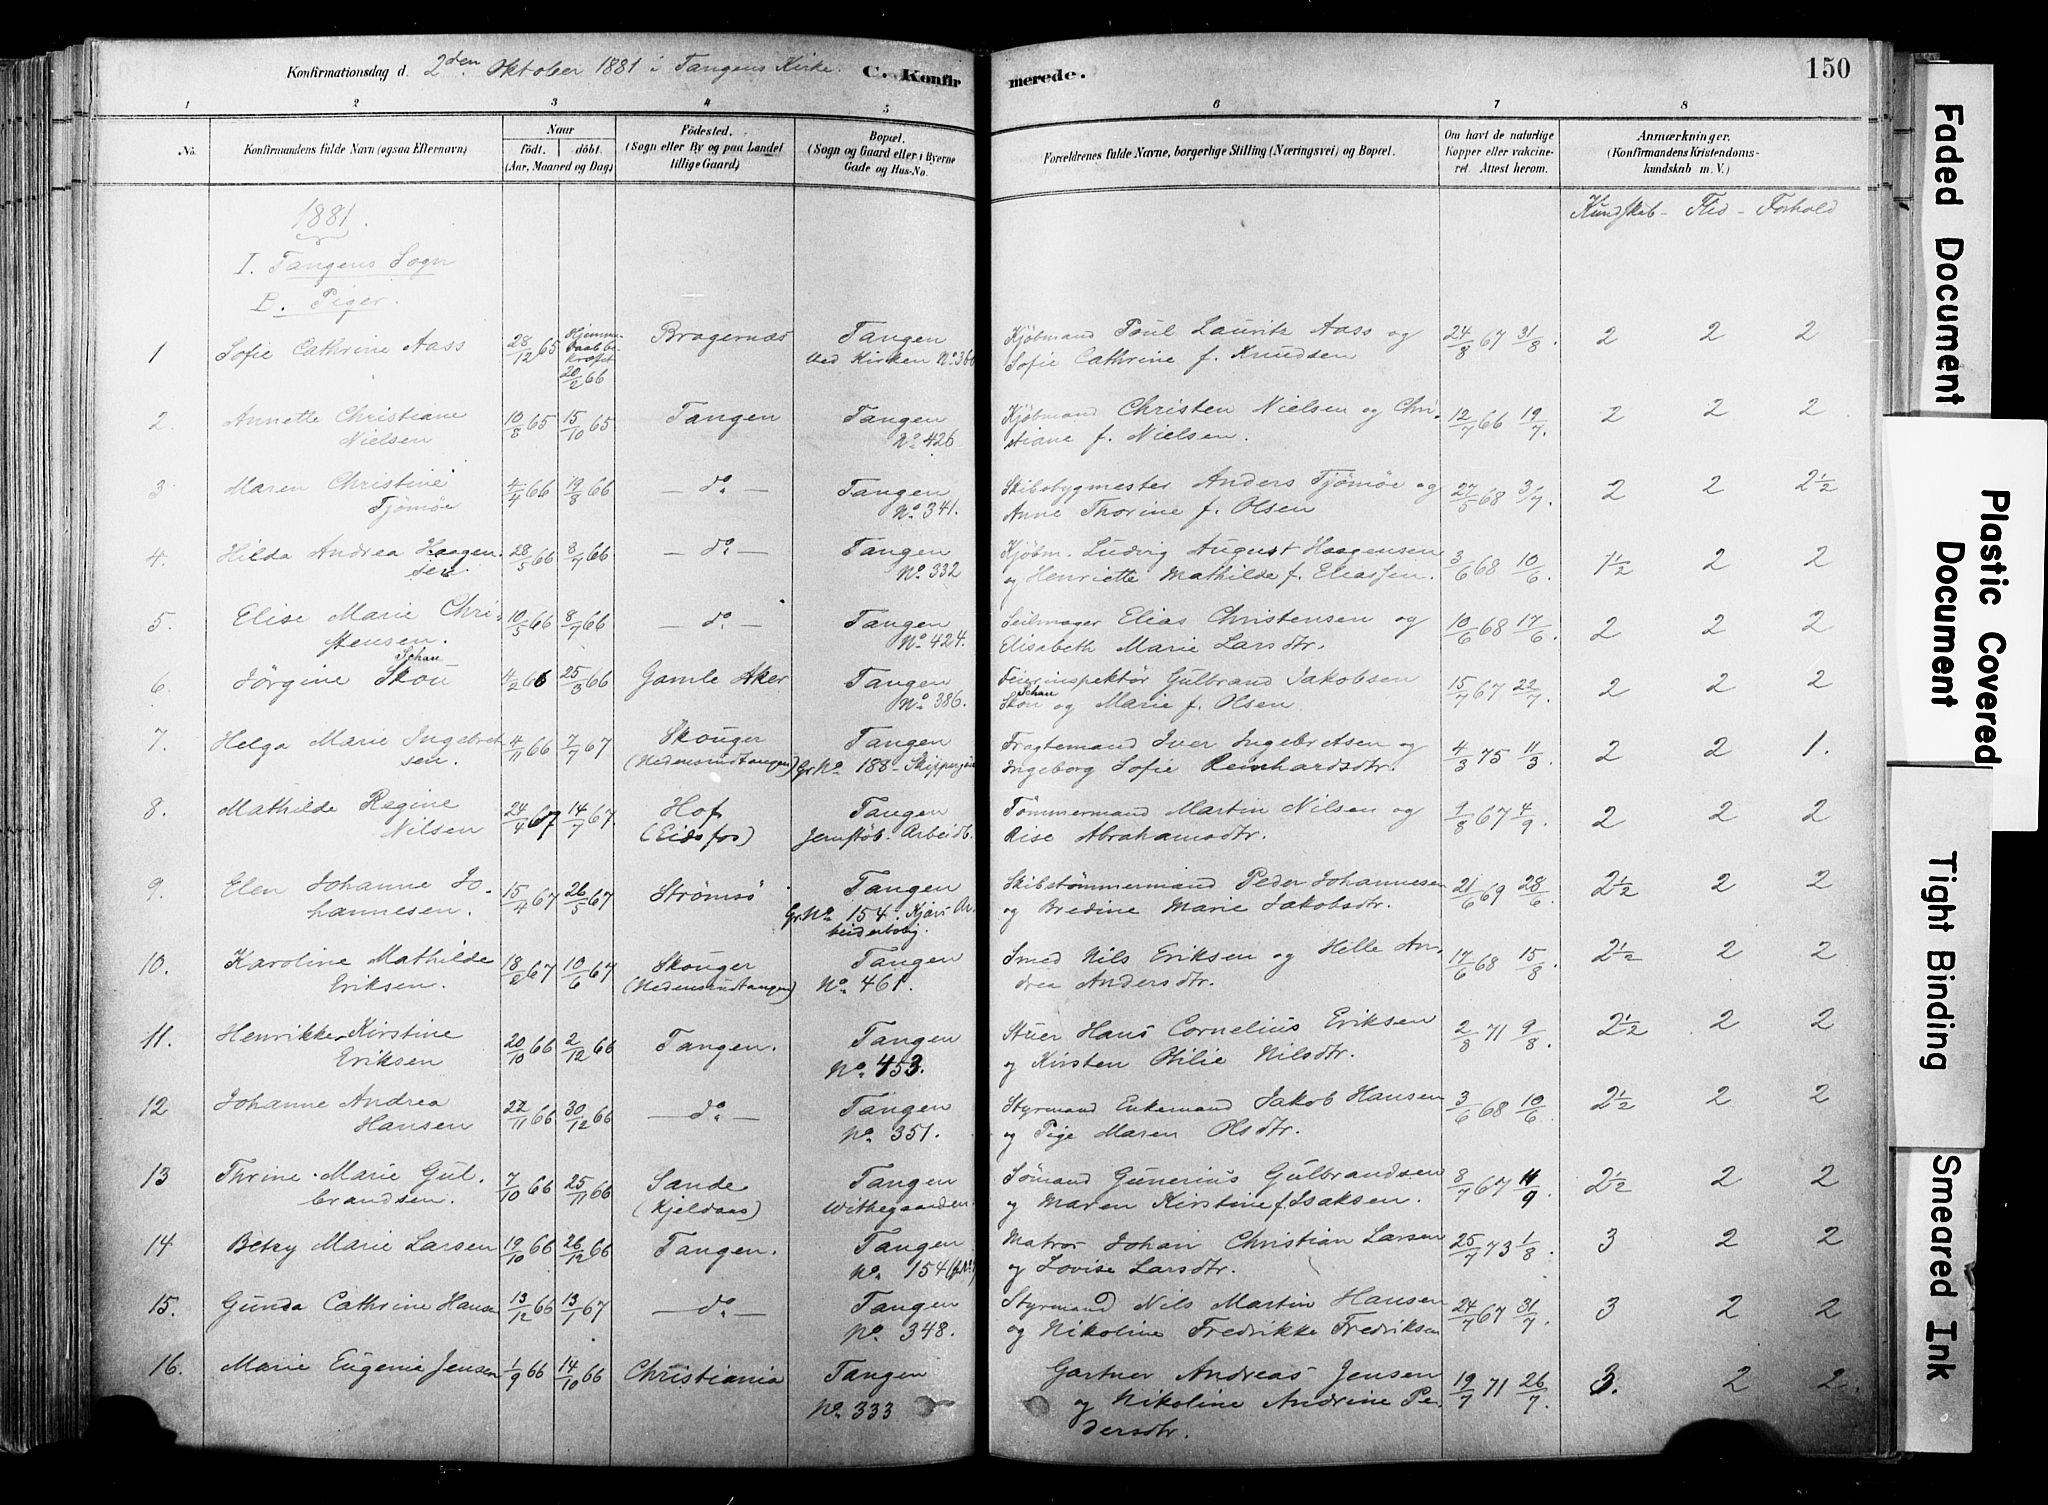 Konfirmationsdag d. 2den Oktober 1881 i Tangens Kirke. C. Konfirmerede. 150
1 2 3 4 5 6 7 8
No. Konfirmandens fulde Navn (ogsaa Efternavn) Naar født. døbt. (Aar, Maaned og Dag) Fødested. (Sogn eller By og paa Landet tillige Gaard) Bopæl. (Sogn og Gaard eller i Byerne Gade og Hus-No. Forældrenes fulde Navne, borgerlige Stilling (Næringsvei) og Bopæl. Om havt de naturlige Kopper eller vakcineret. Attest herom. Anmærkninger. (Konfirmandens Kristendomskundskab m. V.)
Kundskab - Flid - Forhold
1881.
I. Tangens Sogn
B. Piger.
1 Sofie Cathrine Aass 28/12 65 Hjemmedaab bekræftet 20/2 66 Bragernæs Tangen ved Kirken No. 366 Kjøbmand Poul Lauritz Aass og Sofie Cathrine f. Knudsen 24/8 67 31/8. 2 2 2
2. Annette Christiane Nielsen 10/8 65 15/10 65 Tangen Tangen No. 426 Kjøbmand Christen Nielsen og Christiane f. Nielsen. 12/7 66 19/7. 2 2 2
3 Maren Christine Tjömöe 4/4 66 19/8 66 — do. — Tangen No. 341. Skibsbygmester Anders Tjömöe og Anne Thorine f. Olsen 27/5 68 3/7. 2 2 2½
4. Hilda Andrea Haagensen. 28/5 66 8/7 66 — do. — Tangen No. 332 Kjøbm. Ludvig August Haagensen og Henriette Mathilde f. Eliassen. 3/6 68 10/6. 1½ 2 2
5. Elise Marie Christensen. 10/5 66 8/7 66 — do. — Tangen No. 424. Seilmager Elias Christensen og Elisabeth Marie Larsdtr. 10/6 68 17/6. 2 2 2
6. Jørgine Skou Schau 4/2 66 25/3 66 Gamle Aker Tangen No. 386. Feierinspektør Gulbrand Jakobsen Skou Schau og Marie f. Olsen 15/7 67 22/7. 2 2 2
7. Helga Marie Ingebretsen. 4/11 66 7/7 67 Skouger (Nedensundtangen) Tangen Gr No. 188 - Fragtemand Iver Ingebretsen og Ingeborg Sofie Reinhardsdtr. 4/3 75 11/3. 2 2 1.
8. Mathilde Regine Nilsen 24/4 67 14/7 67. Hof (Eidsfos) Tangen Jernstøb. Arbeidb. Tømmermand Martin Nilsen og Rise Abrahamsdtr. 9/8 67 4/9. 2 2 2
9. Elen Johanne Johannesen. 15/4 67 26/5 67 Strömsö Tangen Gr No. 154. Kjærs Arbeiderbolig. Skibstømmermand Peder Johannesen og Bredine Marie Jakobsdtr. 21/6 69 28/6. 2½ 2 2
10. Karoline Mathilde Eriksen. 18/2 67 10/6 67 Skouger (Nedensundtangen) Tangen No. 461. Smed Nils Eriksen og Helle Andrea Andersdtr. 17/6 68 15/8. 2½ 2 2
11. Henrikke Kirstine Eriksen 20/10 66 2/12 66 Tangen. Tangen No. 453. Stuer Hans Cornelius Eriksen og Kirsten Othilie Nilsdtr. 2/8 71 9/8. 2½ 2 2
12 Johanne Andrea Hansen 22/11 66 30/12 66 — do. — Tangen No. 351. Styrmand Enkemand Jakob Hansen og Pige Maren Olsdtr. 3/6 68 10/6. 2½ 2 2
13 Thrine Marie Gulbrandsen. 7/10 66 25/11 66 Sande (Kjeldaas) Tangen Withegaarden. Sømand Gunerius Gulbrandsen og Maren Kirstine f. Isaksen. 8/7 67 11/9. 2½ 2 2
14 Betzy Marie Larsen 19/10 66 26/12 66 Tangen. Tangen No. 154 Matros Johan Christian Larsen og Lovise Larsdtr. 25/7 73 1/8. 3 2 2
15. Gunda Cathrine Hansen 13/12 66 13/1 67 — do. — Tangen No. 348. Styrmand Nils Martin Hansen og Nikoline Fredrikke Fredriksen 24/7 67 31/7. 3 2 2
16. Marie Eugenie Jensen 1/9 66 14/10 66 Christiania Tangen No. 333 Gartner Andreas Jensen og Nikoline Andrine Pedersdtr. 19/7 71 26/7. 3. 2 2.
Faded Document
Plastic Covered Document
Tight Binding
Smeared Ink